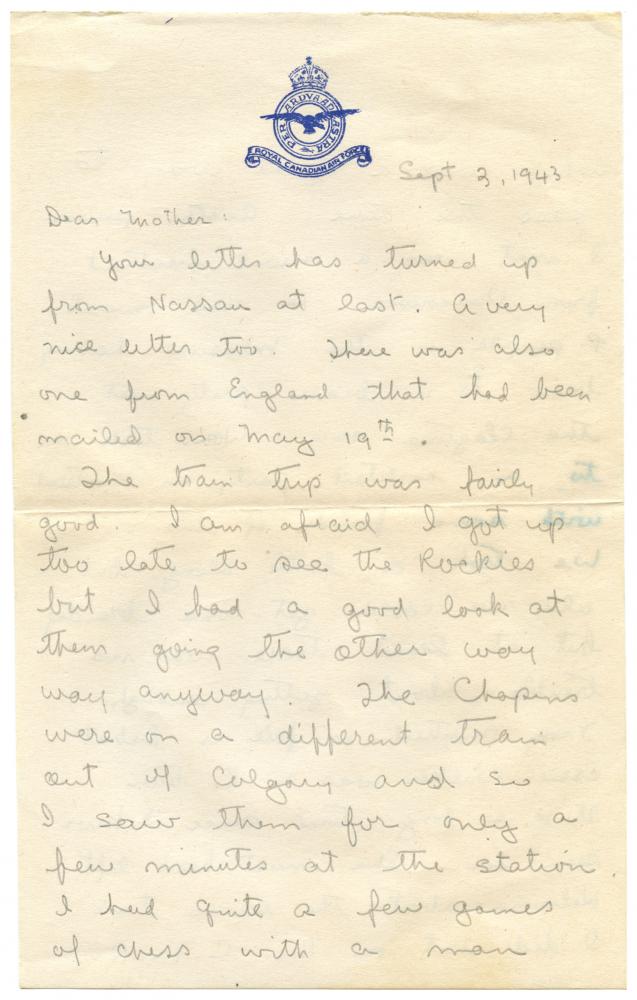 PER ARDVA AD ASTRA
ROYAL CANADIAN AIR FORCE
Sept 2, 1943
Dear Mother:
Your letter has turned up
from Nassau at last. A very
nice letter too. There was also
one from England that had been
mailed on May 19th.
The train trip was fairly
good. I am afraid I got up
too late to see the Rockies
but I had a good look at
them going the other way
way anyway. The Chopins
were on a different train
out of Calgary and so
I saw them for only a
few minutes at the station.
I had quite a few games
of chess with a man